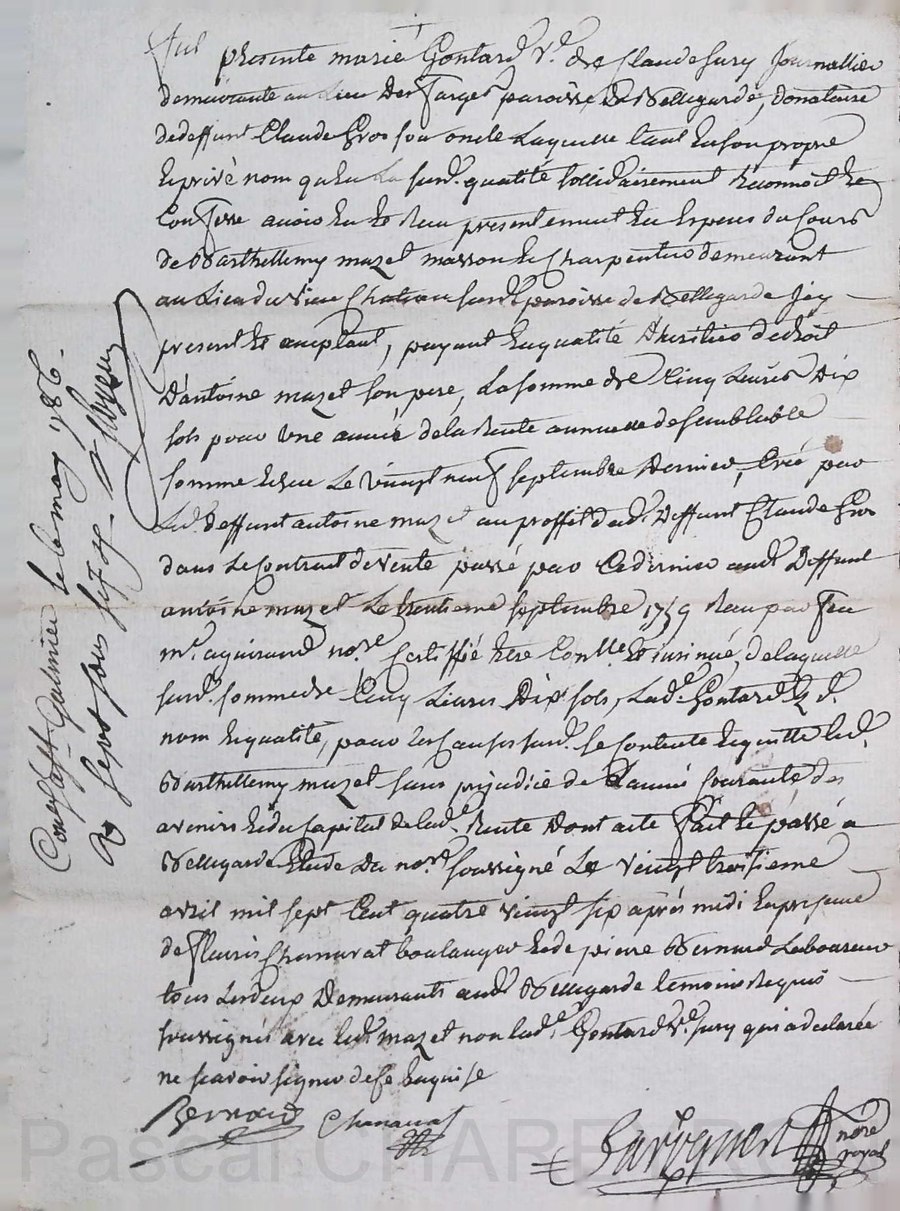 Fut présente marie Gontard v.e de Claude Sury Journallier
demeurante au Lieu Des farges paroisse De Bellegarde, donataire
de deffunt Claude Gros son oncle Laquelle tant En son propre
Et privé nom qu'En La susd. qualité sollidairement Reconnoit Et
Confesse avoir Eu Et Reçu presentement En Especes du Cours
de Barthellemy mazet masson Et Charpentier demeurant
au Lieu du vieux Chateau susd. paroisse de Bellegarde Icy
present Et acceptant, payant En qualité D'heritier de droit
D'antoine mazet son pere, La somme de Cinq Livres Dix
sols pour une année de la Rente annuelle de semblable
somme Echue Le vingt neuf septembre Dernier, Créé par
Led. deffunt antoine mazet au proffit dud. Deffunt Claude Gros
dans Le Contract de vente passé par Ce dernier aud. Deffunt
antoine mazet Le trentieme septembre 1759 Reçu par feu
m.e aguiraud no.re Certiffié Etre Con.lle Et insinué, de laquelle
susd. somme de Cinq Livres Dix sols, Lad.e Gontard Ez d.
nom Et qualité, pour Les Causes susd. se Contente Et quitte Led.
Barthellemy mazet sans préjudice de L'année Courante des
avenirs Et du Capital de lad.e Rente Dont acte Fait Et passé a
Bellegarde Etude Du no.re soussigné Le vingt troisieme
avril mil sept Cent quatre vingt six après midi En presence
de fleuris Chanavat boulanger Et de pierre Bernard Laboureur
tous Les deux Demeurants aud. Bellegarde temoins Requis
soussignés avec Led. mazet non lad.e Gontard v.e Sury qui a declarée
ne scavoir signer de ce Enquise
Bernard Chanavat
nore
royal
Con.lé a St Galmier le 1er may 1786.
R. sept sous six d.
Pascal CHAREYRON